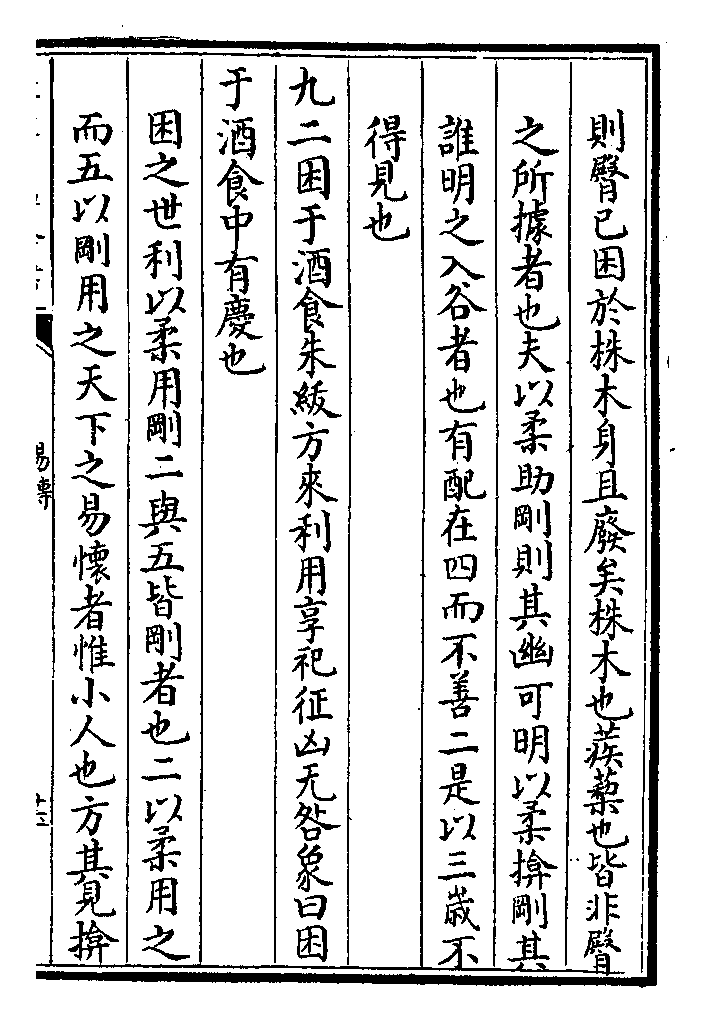 則臀已困於株木身且廢矣株木也蒺蔾也皆非臀
之所據者也夫以柔助剛則其幽可明以柔揜剛其
誰明之入谷者也有配在四而不善二是以三歲不
得見也
九二困于酒食朱紱方來利用享祀征凶无咎象曰困
于酒食中有慶也
困之世利以柔用剛二與五皆剛者也二以柔用之
而五以剛用之天下之易懷者惟小人也方其見揜
易傳